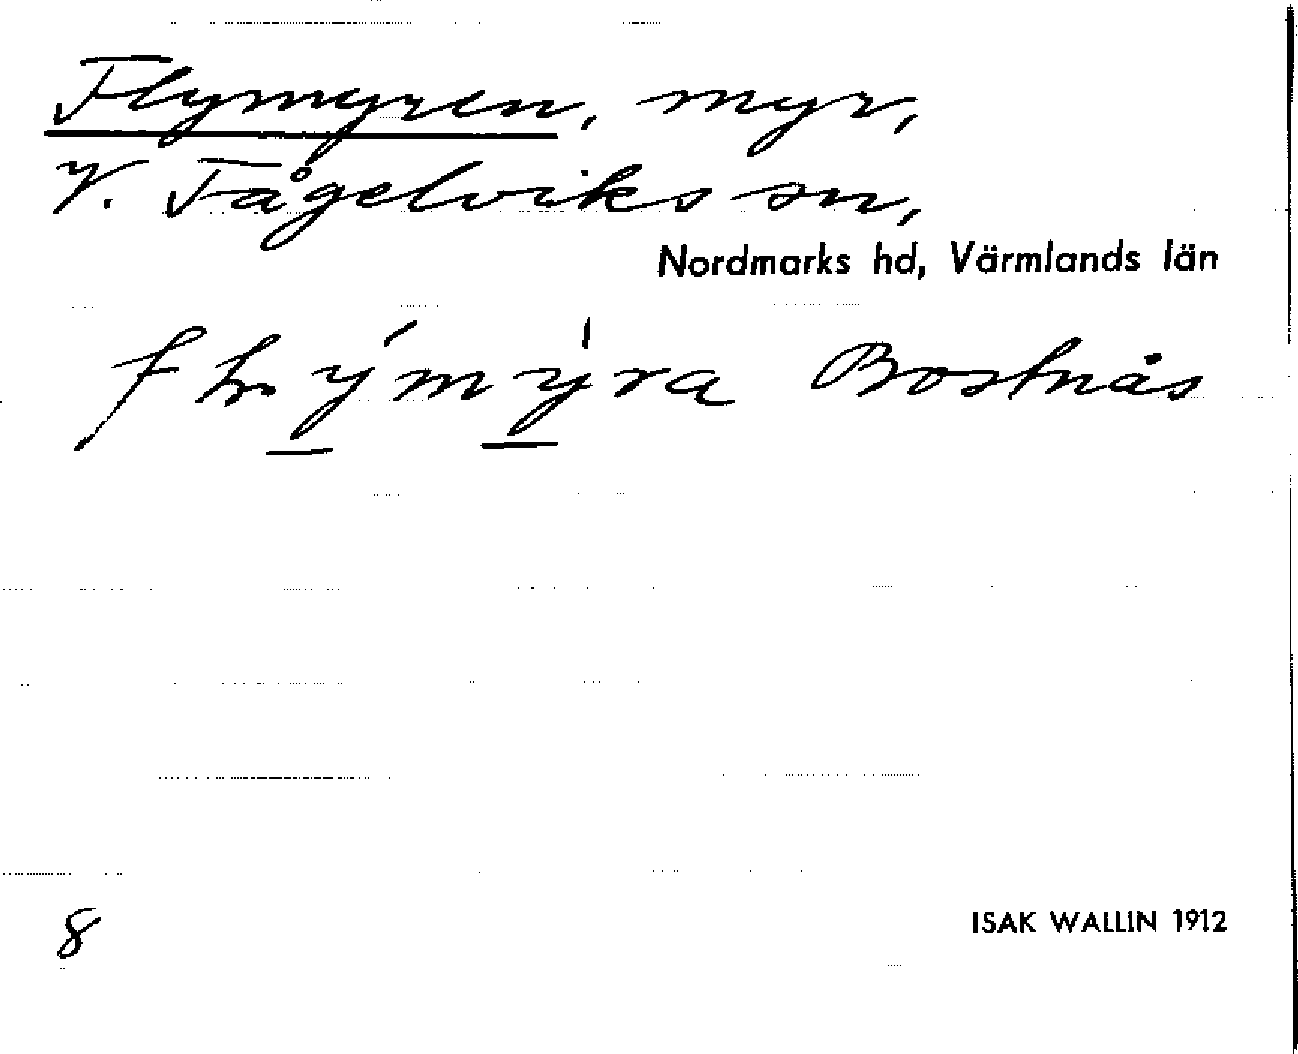 Flymyren, myr,
V. Fågelviks sn,
Nordmarks hd, Värmlands län
Bostnäs
8
ISAK WALLIN 1912